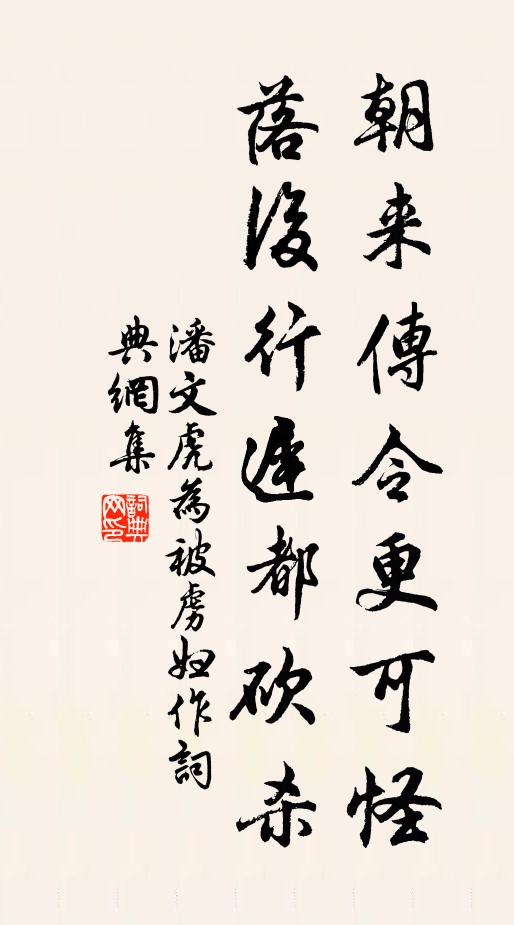 朝来傳令更可怪
落後行遲都砍杀
潘文虎為被虜妇作詞
典網集
詞典网印